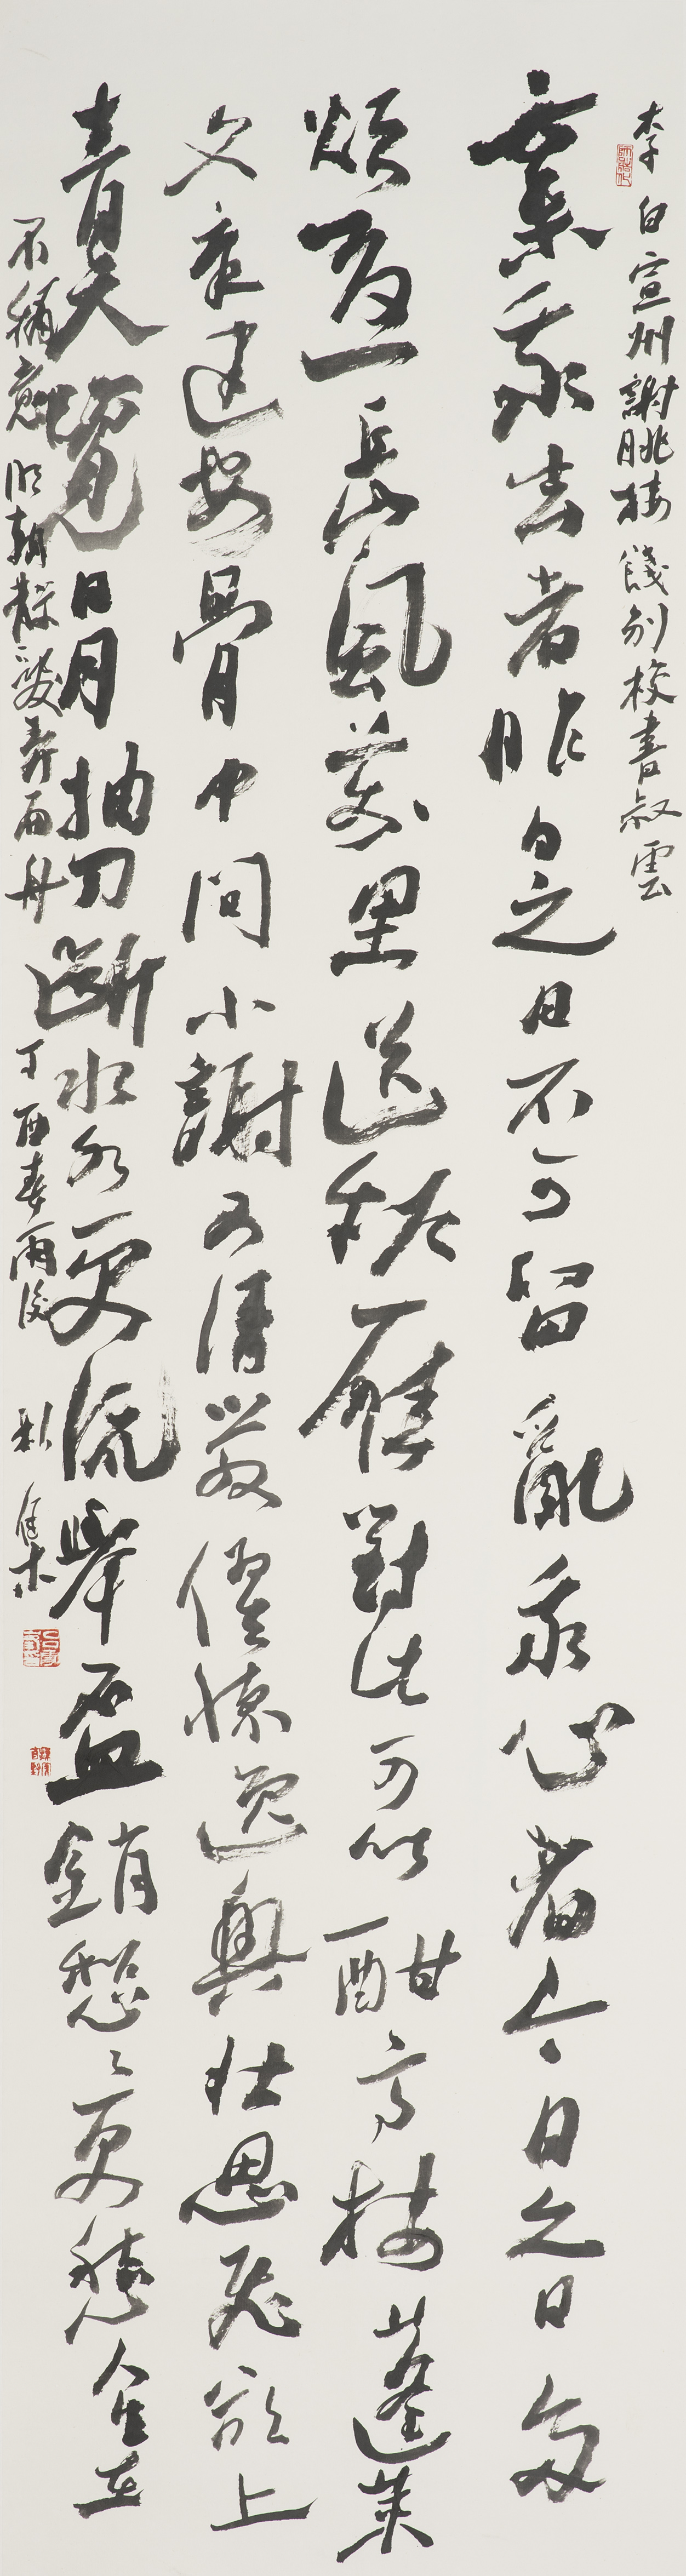 李白宣州謝朓樓餞別校書叔雲
棄我去者昨日之日不可留亂我心者今日之日多
煩憂長風萬里送秋雁對此可以酣高樓蓬萊
文章建安骨中間小謝又清發俱懷逸興壯思飛欲上
青天覽日月抽刀斷水水更流舉盃銷愁〻更愁人生在
不稱意明朝散髮弄扁舟 丁酉春雨後